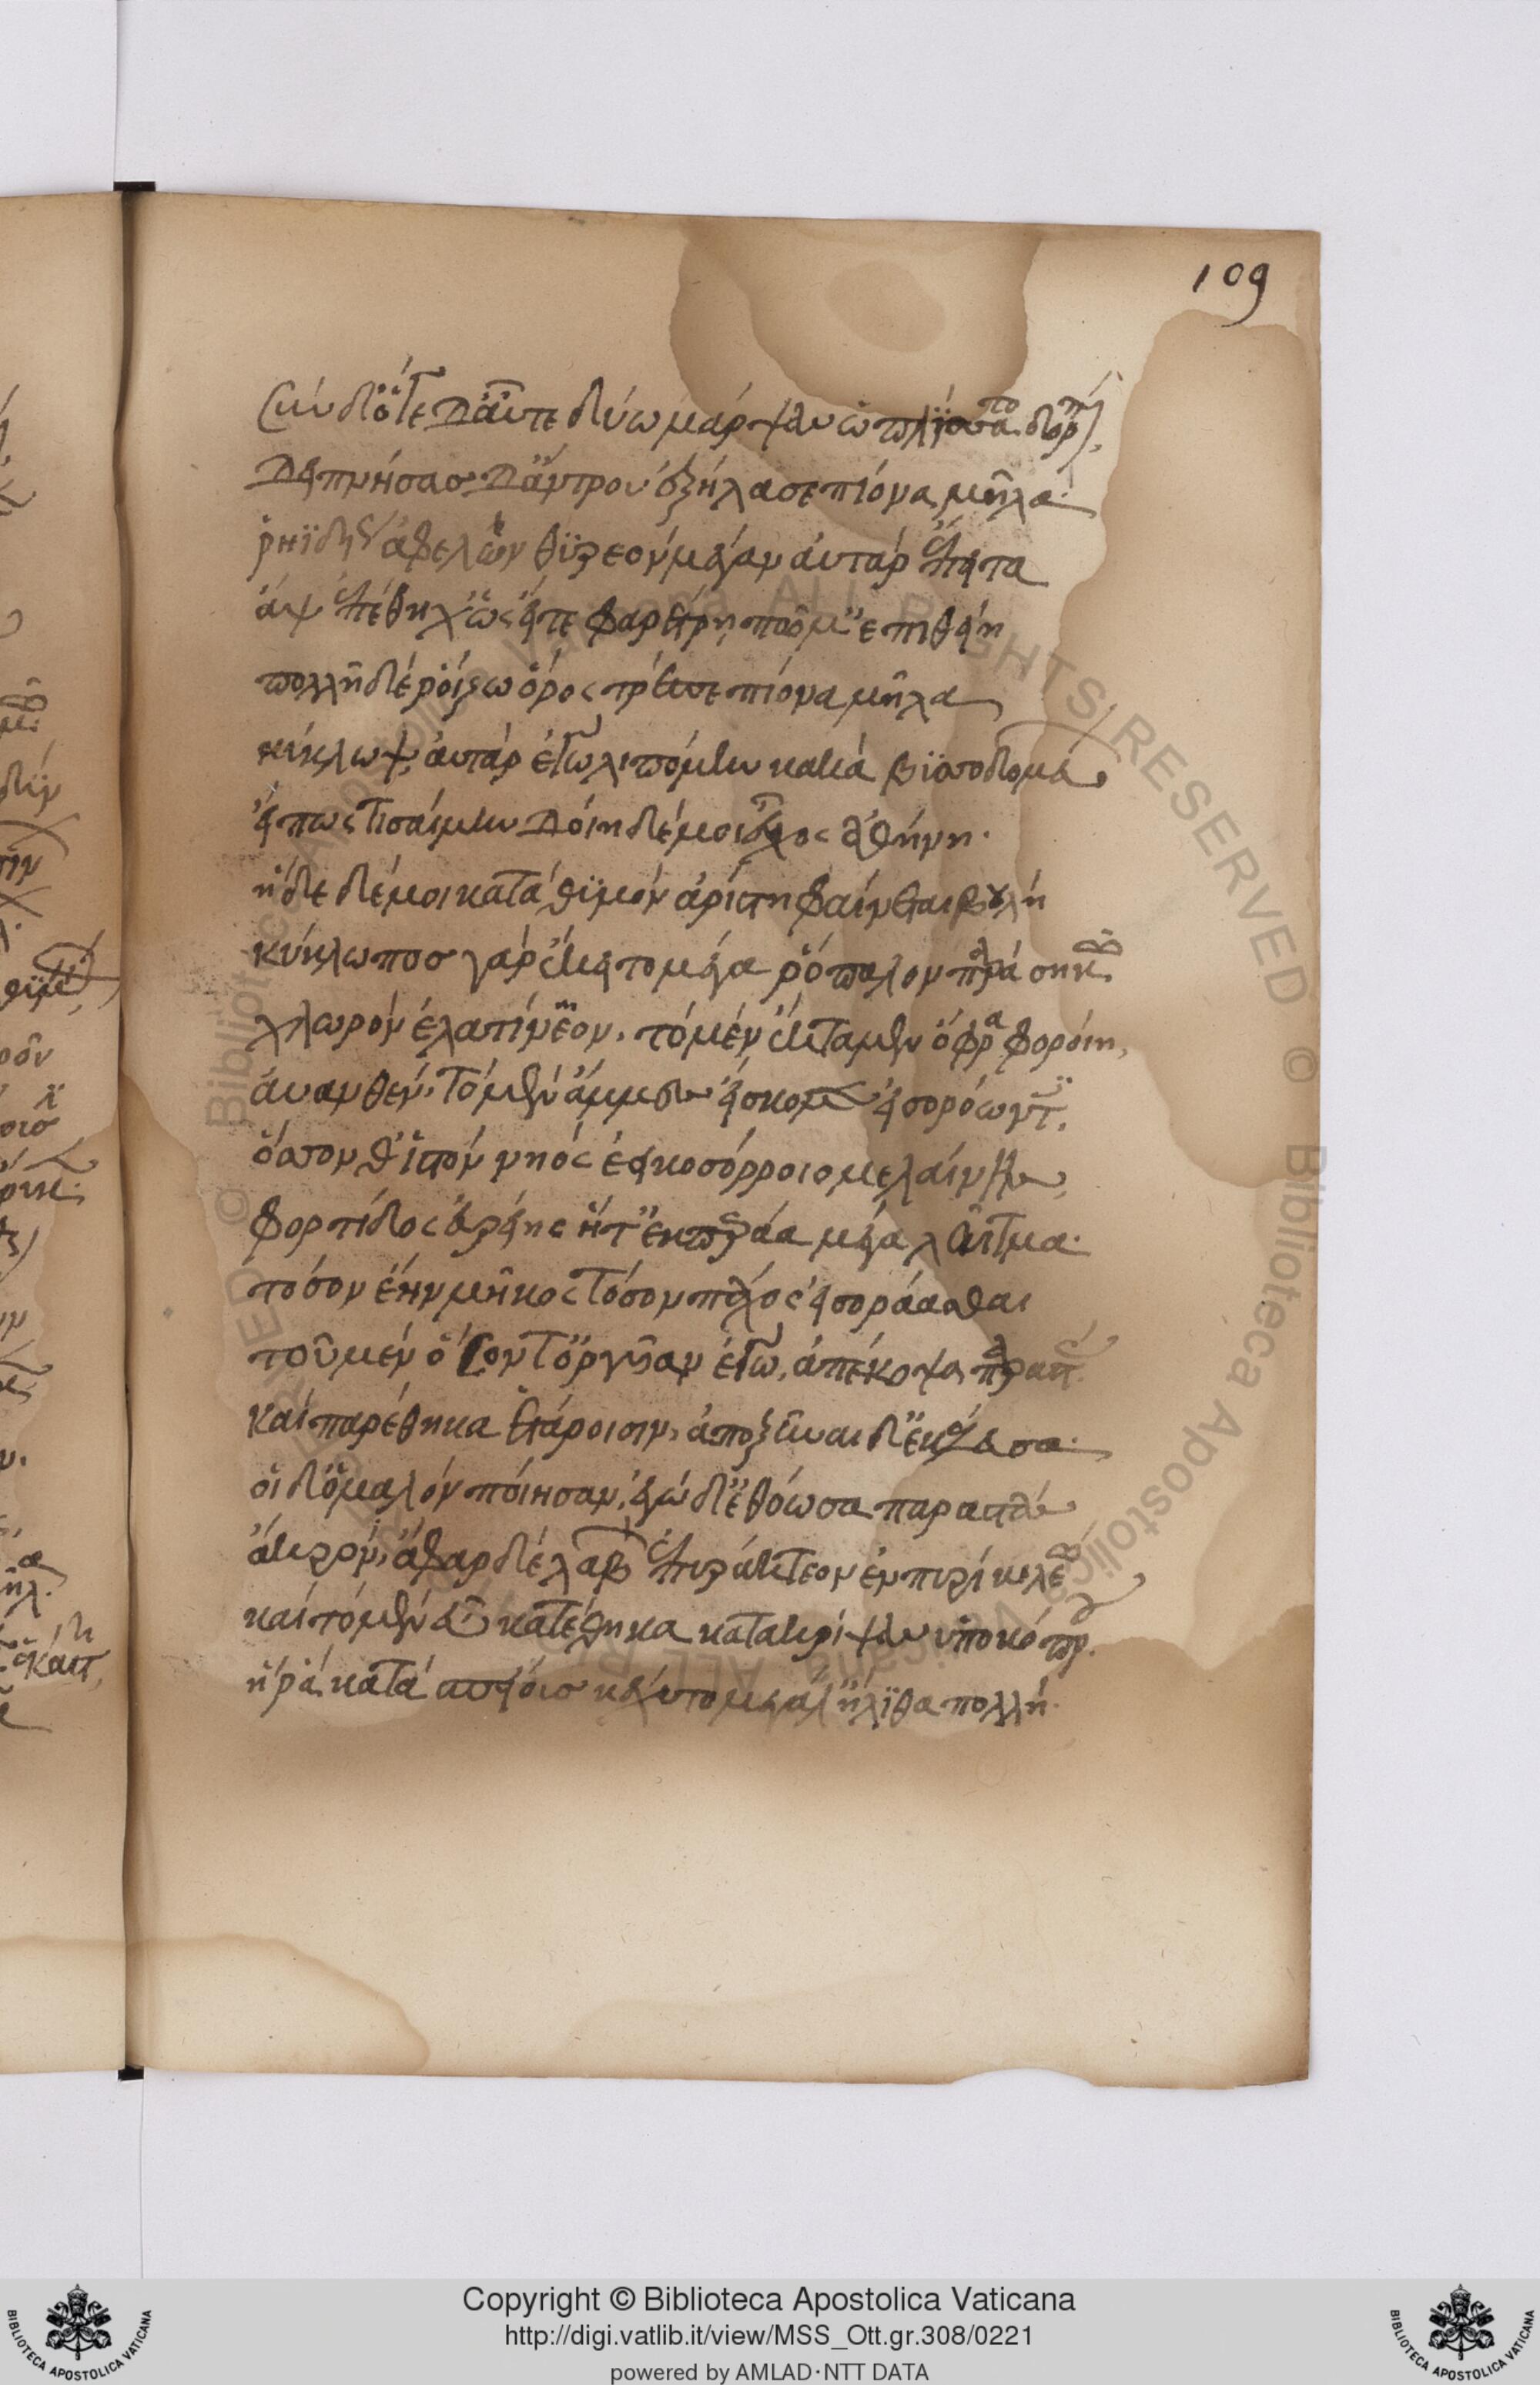 109
σὺν δ' ὅτε δ' αὖτε δύω μάρψας ὡπλίσσατο δόρπον
δειπνήσας δ' ἄντρου ἐξήλασε πίονα μῆλα·
ῥηϊδίως ἀφελὼν θυρεὸν μέγαν αὐτὰρ ἔπειτα
ἂψ ἐπέθηχ' ὡς εἴ τε φαρέτρῃ πῶμ' ἐπιθείη
πολλῇ δὲ ῥοίζῳ ὄρος τρέπε πίονα μῆλα
κύκλωψ, αὐτὰρ ἐγὼ λιπόμην κακὰ βυσσοδομεύων
εἴ πως τισαίμην δοίη δέ μοι εὖχος ἀθήνη·
ἥδε δέ μοι κατὰ θυμὸν ἀρίστη φαίνεται βουλή
κύκλωπος γὰρ ἔκειτο μέγα ῥόπαλον παρὰ σηκῷ
χλωρὸν ἐλαΐνεον. τὸ μὲν ἔκταμεν ὄφρα φοροίη,
αὐανθέν. τὸ μὲν ἄμμες ἐΐσκομεν εἰσορόωντες,
ὅσσον θ' ἱστὸν νηὸς ἐεικοσόροιο μελαίνης,
φορτίδος εὐρείης ἥτ' ἐκπεράα μέγα λαῖτμα·
τόσσον ἔην μῆκος τόσσον πάχος εἰσοράασθαι
τοῦ μὲν ὅσον τ' ὄργυιαν ἐγὼν ἀπέκοψα παραστὰς
καὶ παρέθηκα ἑτάροισιν, ἀποξῦναι δ' ἐκέλευσα·
οἱ δ' ὁμαλὸν ποίησαν, ἐγὼ δ' ἐθόωσα παραστὰς
ἄκρον, ἄφαρ δὲ λαβὼν ἐπυράκτεον ἐν πυρὶ κηλέῳ
καὶ τὸ μὲν εὖ κατέθηκα κατακρύψας ὑπὸ κόπρῳ
ἥ ῥα κατὰ σπείους κέχυτο μεγάλ' ἤλιθα πολλή·
Copyright © Biblioteca Apostolica Vaticana
http://digi.vatlib.it/view/MSS_Ott.gr.308/0221
powered by AMLAD·NTT DATA